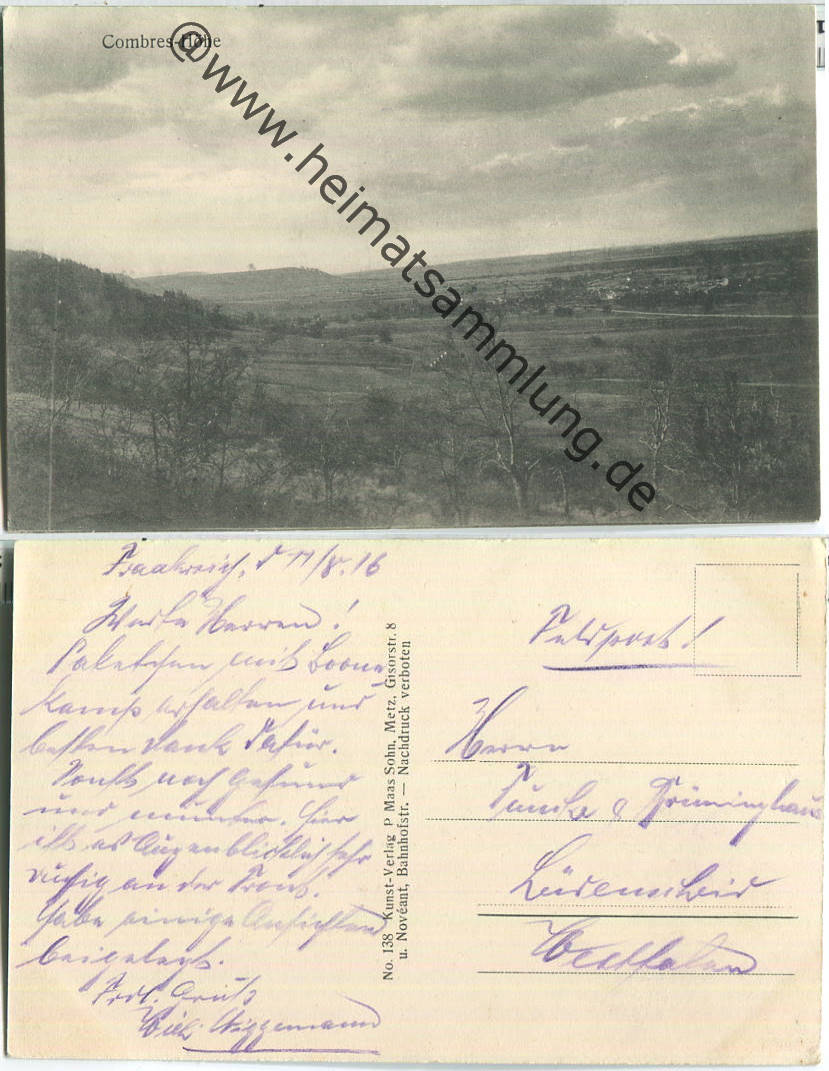 Combres-Höhe
@www.heimatsammlung.de
Frankreich, d 11/8.16
Werte Herren!
Paketchen mit Boone-
kamp erhalten und
besten Dank dafür.
Sonst noch gesund
und munter. Hier
ist es Augenblicklich sehr
ruhig an der Front.
Habe einige Ansichten
beigelegt.
Frdl. Gruß
Wilh. Wiggemann
No. 138 Kunst-Verlag P Maas Sohn, Metz, Gisorstr. 8
u. Novéant, Bahnhofstr. — Nachdruck verboten
Feldpost!
Herrn
&
Lüdenscheid
Westfalen